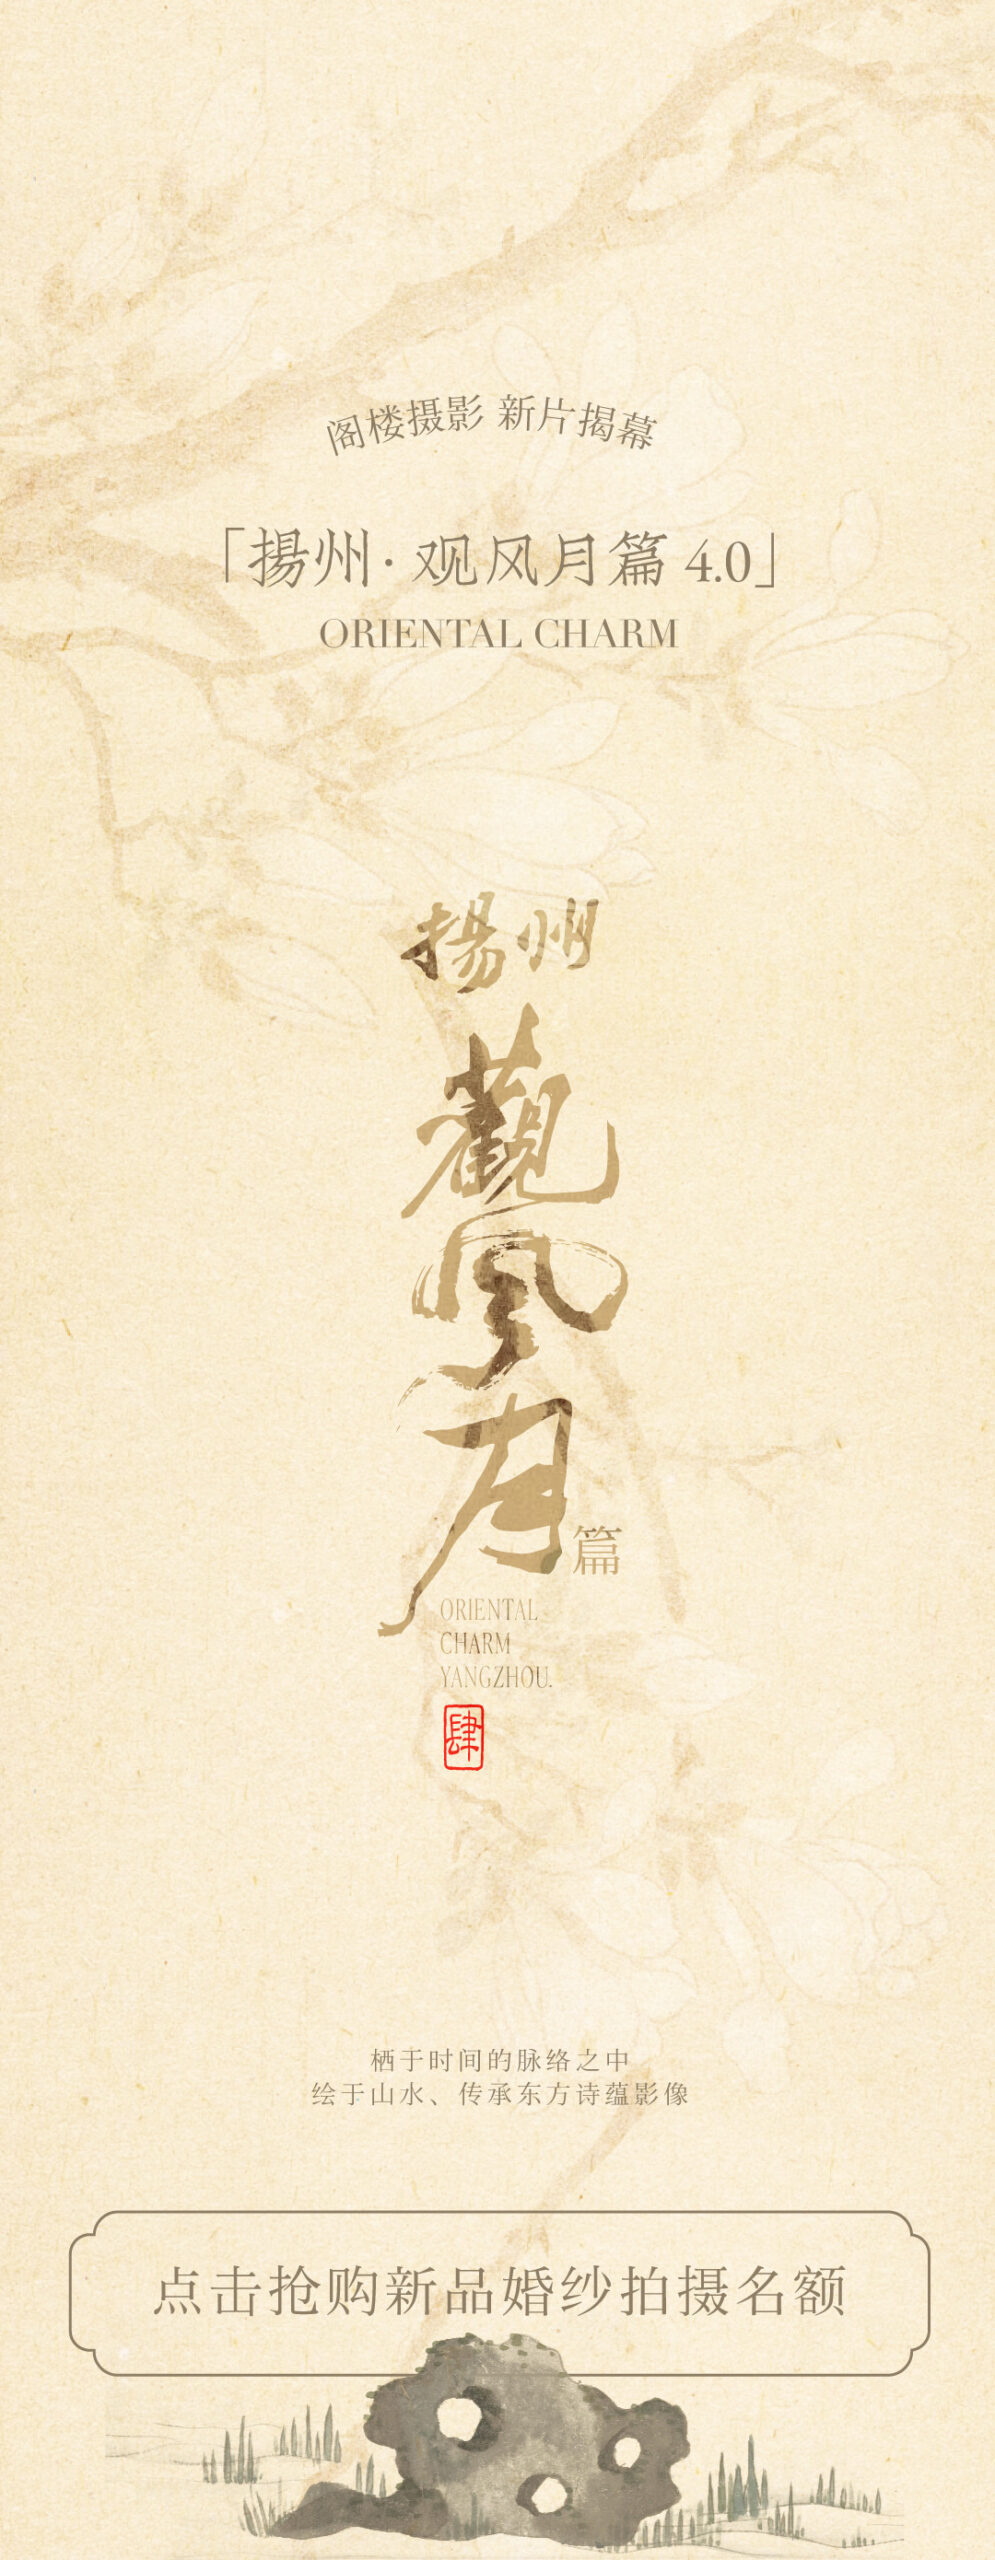 阁楼摄影 新片揭幕
「揚州·观风月篇 4.0」
ORIENTAL CHARM
揚州
觀風月
篇
ORIENTAL
CHARM
YANGZHOU.
肆
栖于时间的脉络之中
绘于山水、传承东方诗蕴影像
点击抢购新品婚纱拍摄名额